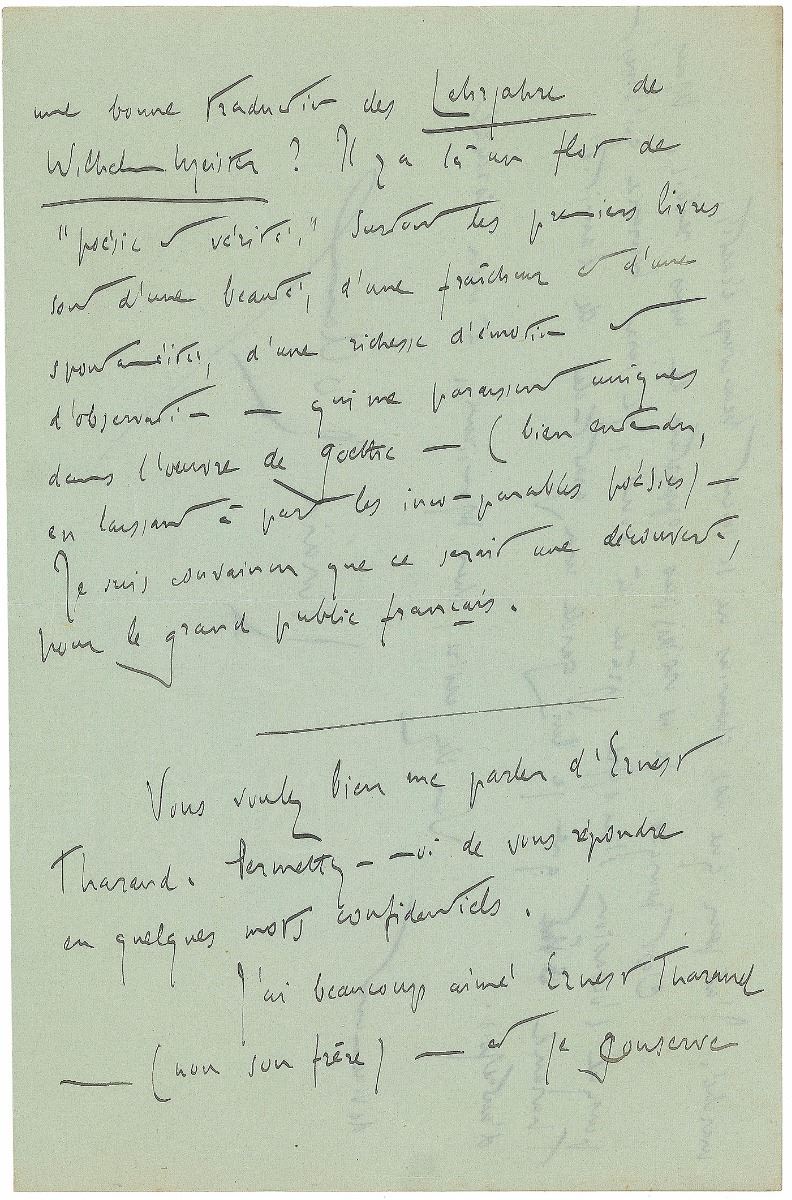 une bonne traduction des Lehrjahre de
Wilhelm Meister ? Il y a là un flot de
"poésie et vérité," surtout les premiers livres
sont d'une beauté, d'une fraîcheur et d'une
spontanéité, d'une richesse d'émotion et
d'observation — qui me paraissent uniques
dans l'œuvre de Goethe — (bien entendu,
en laissant à part les incomparables poésies) —
Je suis convaincu que ce serait une découverte,
pour le grand public français.
Vous voulez bien me parler d'Ernest
Tharaud. Permettez-moi de vous répondre
en quelques mots confidentiels.
J'ai beaucoup aimé Ernest Tharaud
— (non son frère) — et je conserve